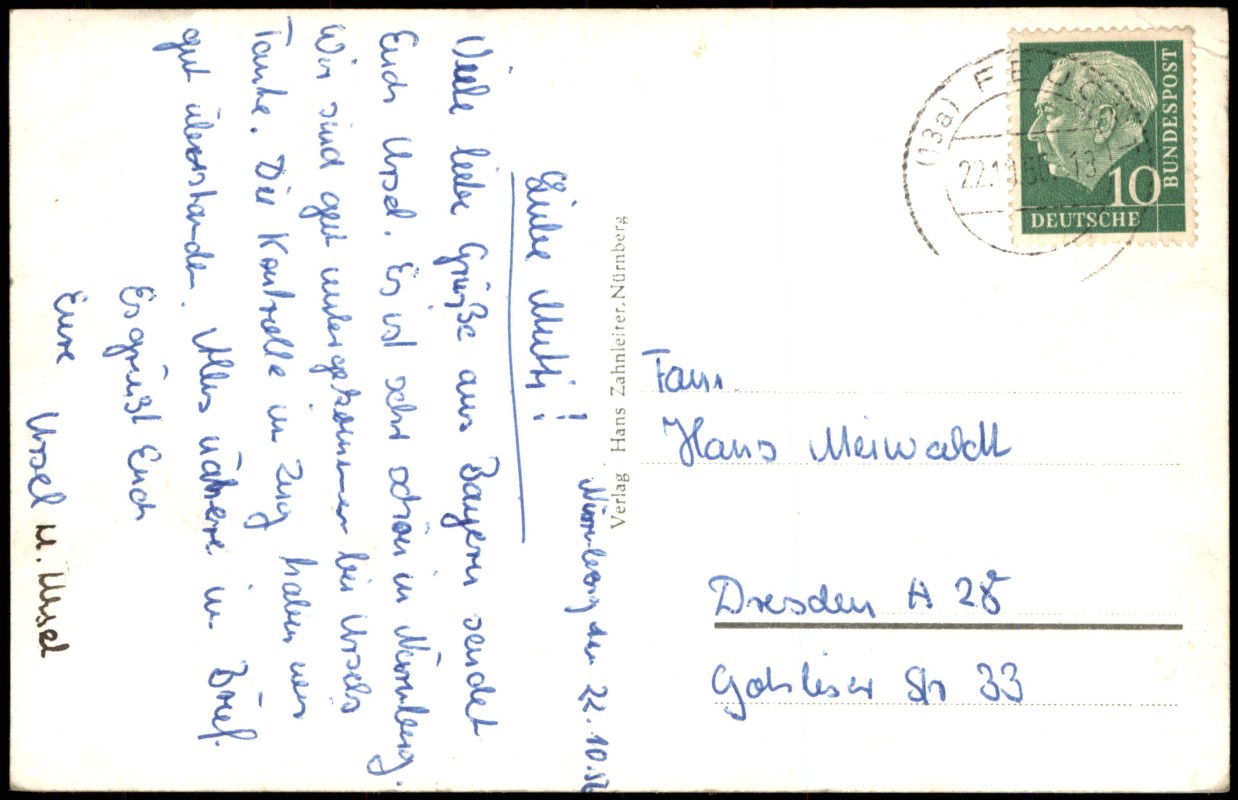 Nürnberg den 22.10.56
Liebe Mutti!
Viele liebe Grüße aus Bayern sendet
Euch Ursel. Es ist sehr schön in Nürnberg.
Wir sind gut untergekommen bei Ursels
Tante. Die Kontrolle im Zug haben wir
gut überstanden. Alles nähere im Brief.
Es grüßt Euch
Eure Ursel u. Ursel
Verlag Hans Zahnleiter, Nürnberg
(13a) FEUCHT
22.10.56 13
BUNDESPOST
10
DEUTSCHE
Fam.
Hans Meiwaldt
Dresden A 28
Gohliser Str 33